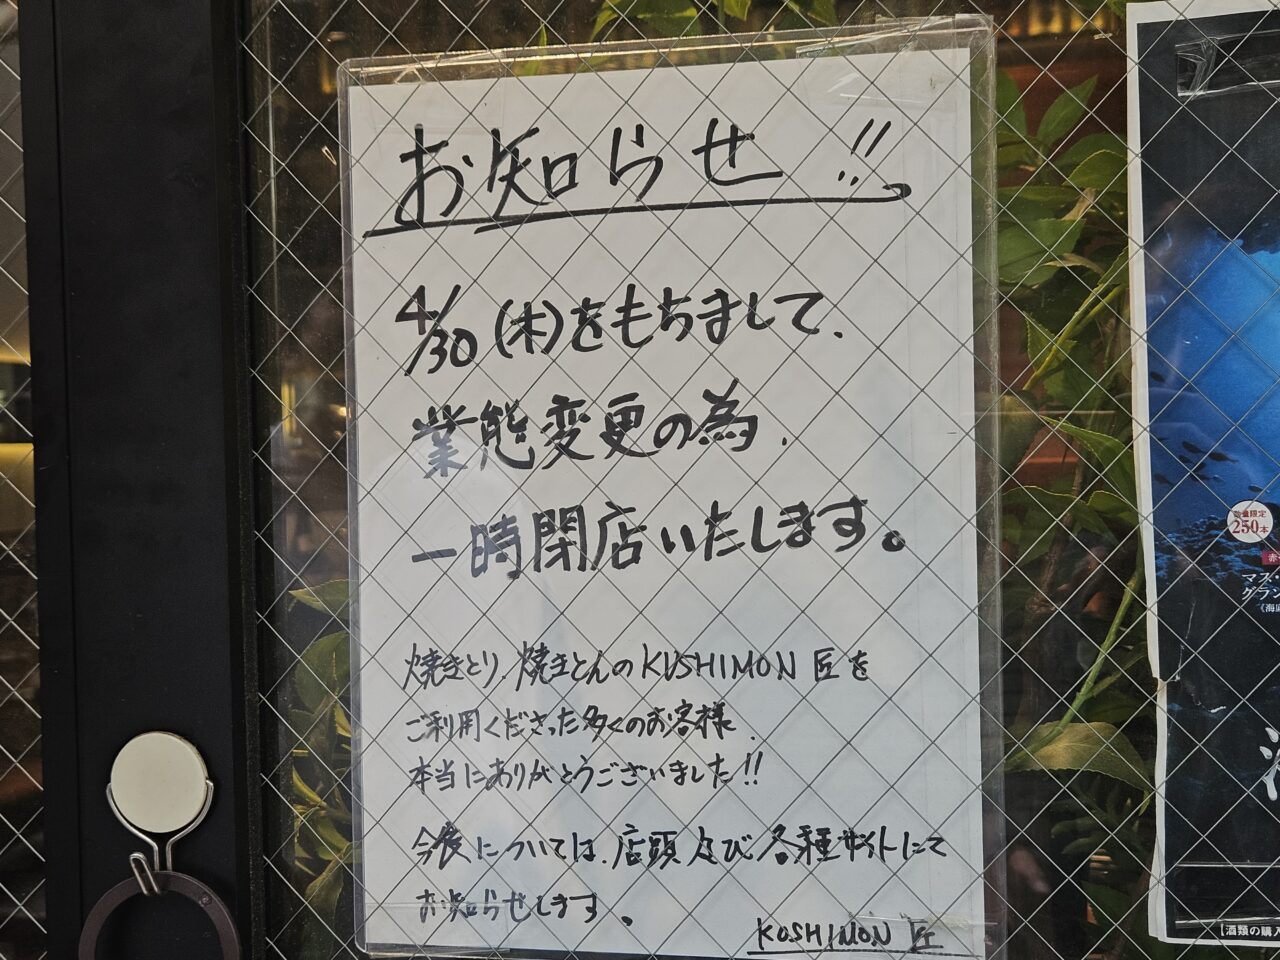 お知らせ!!
4/30(木)をもちまして、
業態変更の為、
一時閉店いたします。
焼きとり、焼きとんのKUSHIMON 匠を
ご利用くださった多くのお客様、
本当にありがとうございました!!
今後については、店頭及び各種サイトにて
お知らせします。
KUSHIMON 匠
数量限定
250本
マス・
グラン
【酒類の購入